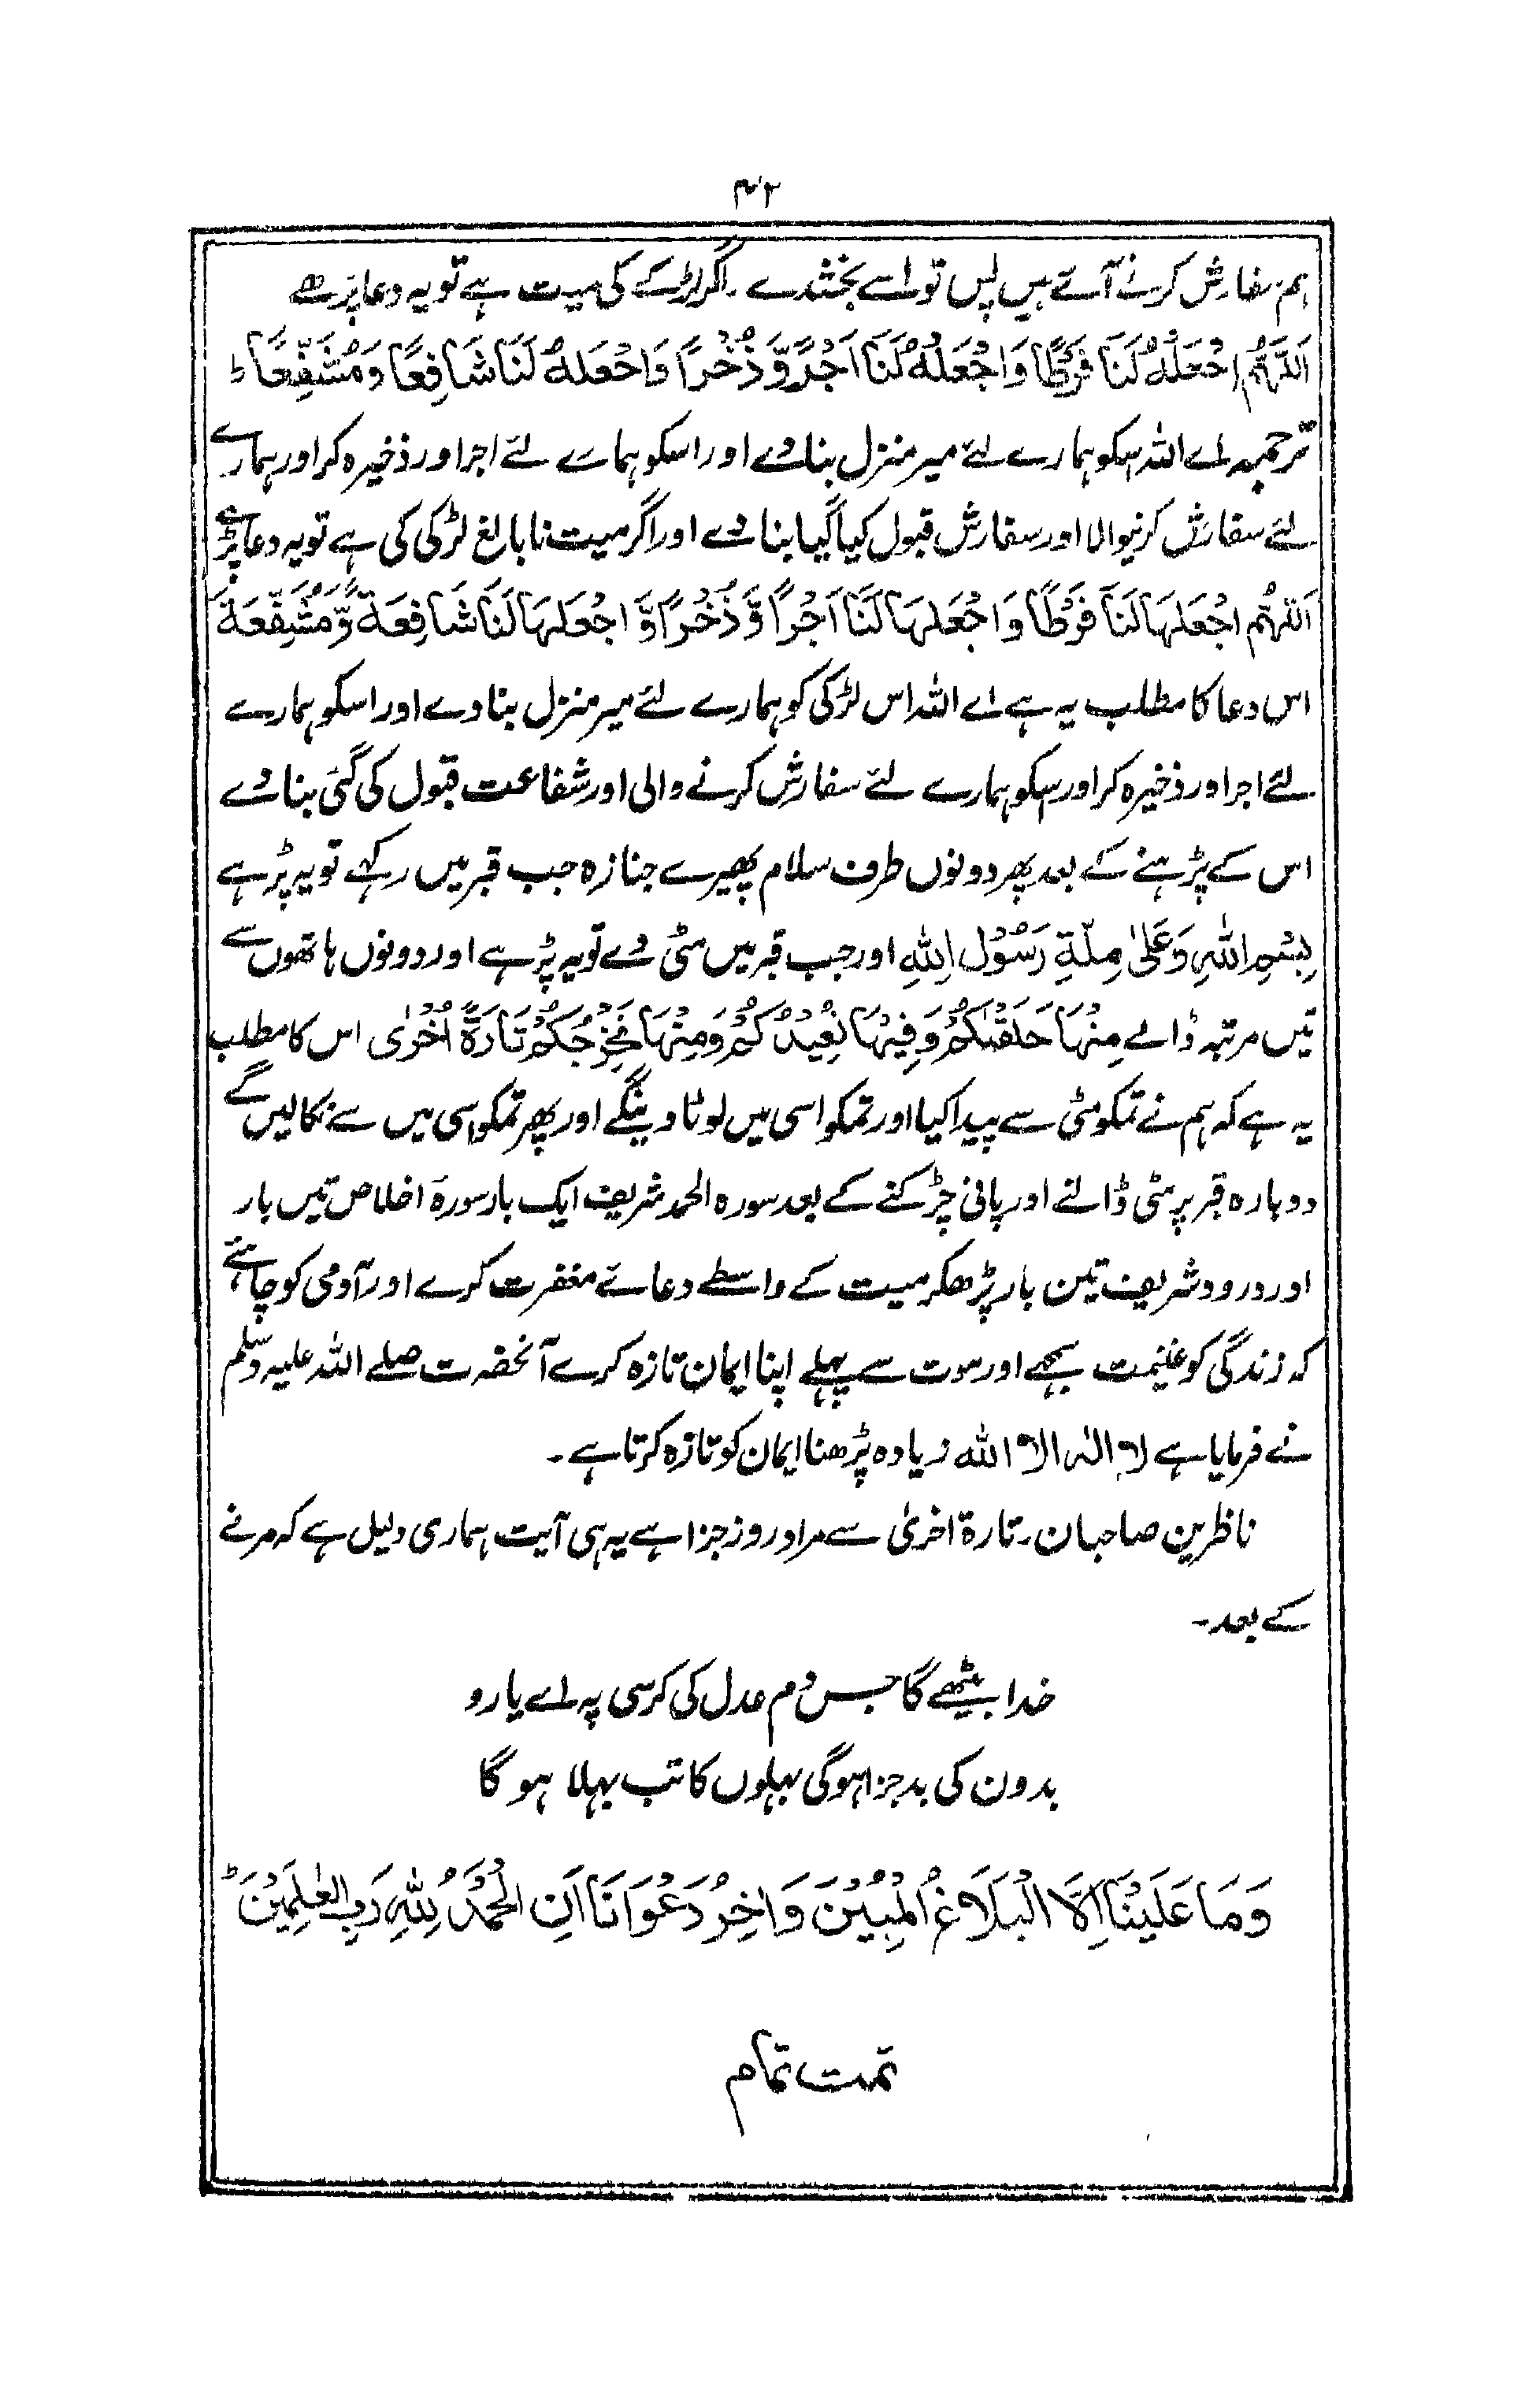 ۴۲
ہم سفارش کرنے آئے ہیں پس تو اسے بخشدے ۔ اگر لڑکے کی میت ہے تو یہ دعا پڑھے
اَللّٰہُمَّ اجْعَلْہُ لَنَا فَرَطًا وَاجْعَلْہُ لَنَا اَجْرًا وَّ ذُخْرًا وَاجْعَلْہُ لَنَا شَافِعًا وَ مُشَفَّعًا ط
ترجمہ اے اللہ اسکو ہمارے لئے میر منزل بنا دے اور اسکو ہمارے لئے اجر اور ذخیرہ کر اور ہمارے
لئے سفارش کرنیوالا اور سفارش قبول کیا گیا بنا دے اور اگر میت نا بالغ لڑکی کی ہے تو یہ دعا پڑہے
اَللّٰہُمَّ اجْعَلْہَا لَنَا فَرَطًا وَاجْعَلْہَا لَنَا اَجْرًا وَّ ذُخْرًا وَّ اجْعَلْہَا لَنَا شَافِعَۃً وَّ مُشَفَّعَۃً
اس دعا کا مطلب یہ ہے اے اللہ اس لڑکی کو ہمارے لئے میر منزل بنا دے اور اسکو ہمارے
لئے اجر اور ذخیرہ کر اور اسکو ہمارے لئے سفارش کرنے والی اور شفاعت قبول کی گئی بنا دے
اس کے پڑہنے کے بعد پھر دونوں طرف سلام پھیرے جنازہ جب قبر میں رکہے تو یہ پڑہے
بِسْمِ اللہِ وَ عَلٰی مِلَّۃِ رَسُوْلِ اللہِ اور جب قبر میں مٹی دے تو یہ پڑہے اور دونوں ہاتھوں سے
تین مرتبہ ڈالے مِنْہَا خَلَقْنٰکُمْ وَ فِیْہَا نُعِیْدُ کُمْ وَ مِنْہَا نُخْرِجُکُمْ تَارَۃً اُخْرٰی اس کا مطلب
یہ ہے کہ ہم نے تمکو مٹی سے پیدا کیا اور تمکو اسی میں لوٹا دینگے اور پھر تمکو اسی میں سے نکالیں گے
دوبارہ قبر پر مٹی ڈالنے اور پانی چڑکنے کے بعد سورہ الحمد شریف ایک بار سورۃ اخلاص تین بار
اور درود شریف تین بار پڑھکر میت کے واسطے دعائے مغفرت کرے اور آدمی کو چاہئے
کہ زندگی کو غنیمت سمجہے اور موت سے پہلے اپنا ایمان تازہ کرے آنحضرت صلے اللہ علیہ وسلم
نے فرمایا ہے لا الٰہ الا اللہ زیادہ پڑھنا ایمان کو تازہ کرتا ہے ۔
ناظرین صاحبان ۔ تارۃ اخریٰ سے مراد روز جزا ہے یہ ہی آیت ہماری دلیل ہے کہ مرنے
کے بعد ۔
خدا بیٹھے گا جس دم عدل کی کرسی پہ اے یارو
بدون کی بد جزا ہوگی بہلوں کا تب بہلا ہو گا
وَ مَا عَلَیْنَا اِلَّا الْبَلَاغُ الْمُبِیْنَ وَ اٰخِرُ دَعْوَانَا اَنِ الْحَمْدُ لِلہِ رَبِّ الْعٰلَمِیْنَ ط
تمت تمام